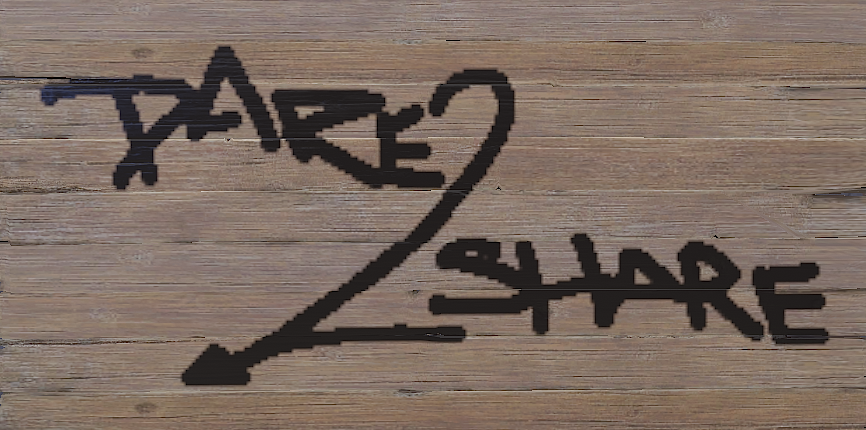 DARE
2
SHARE